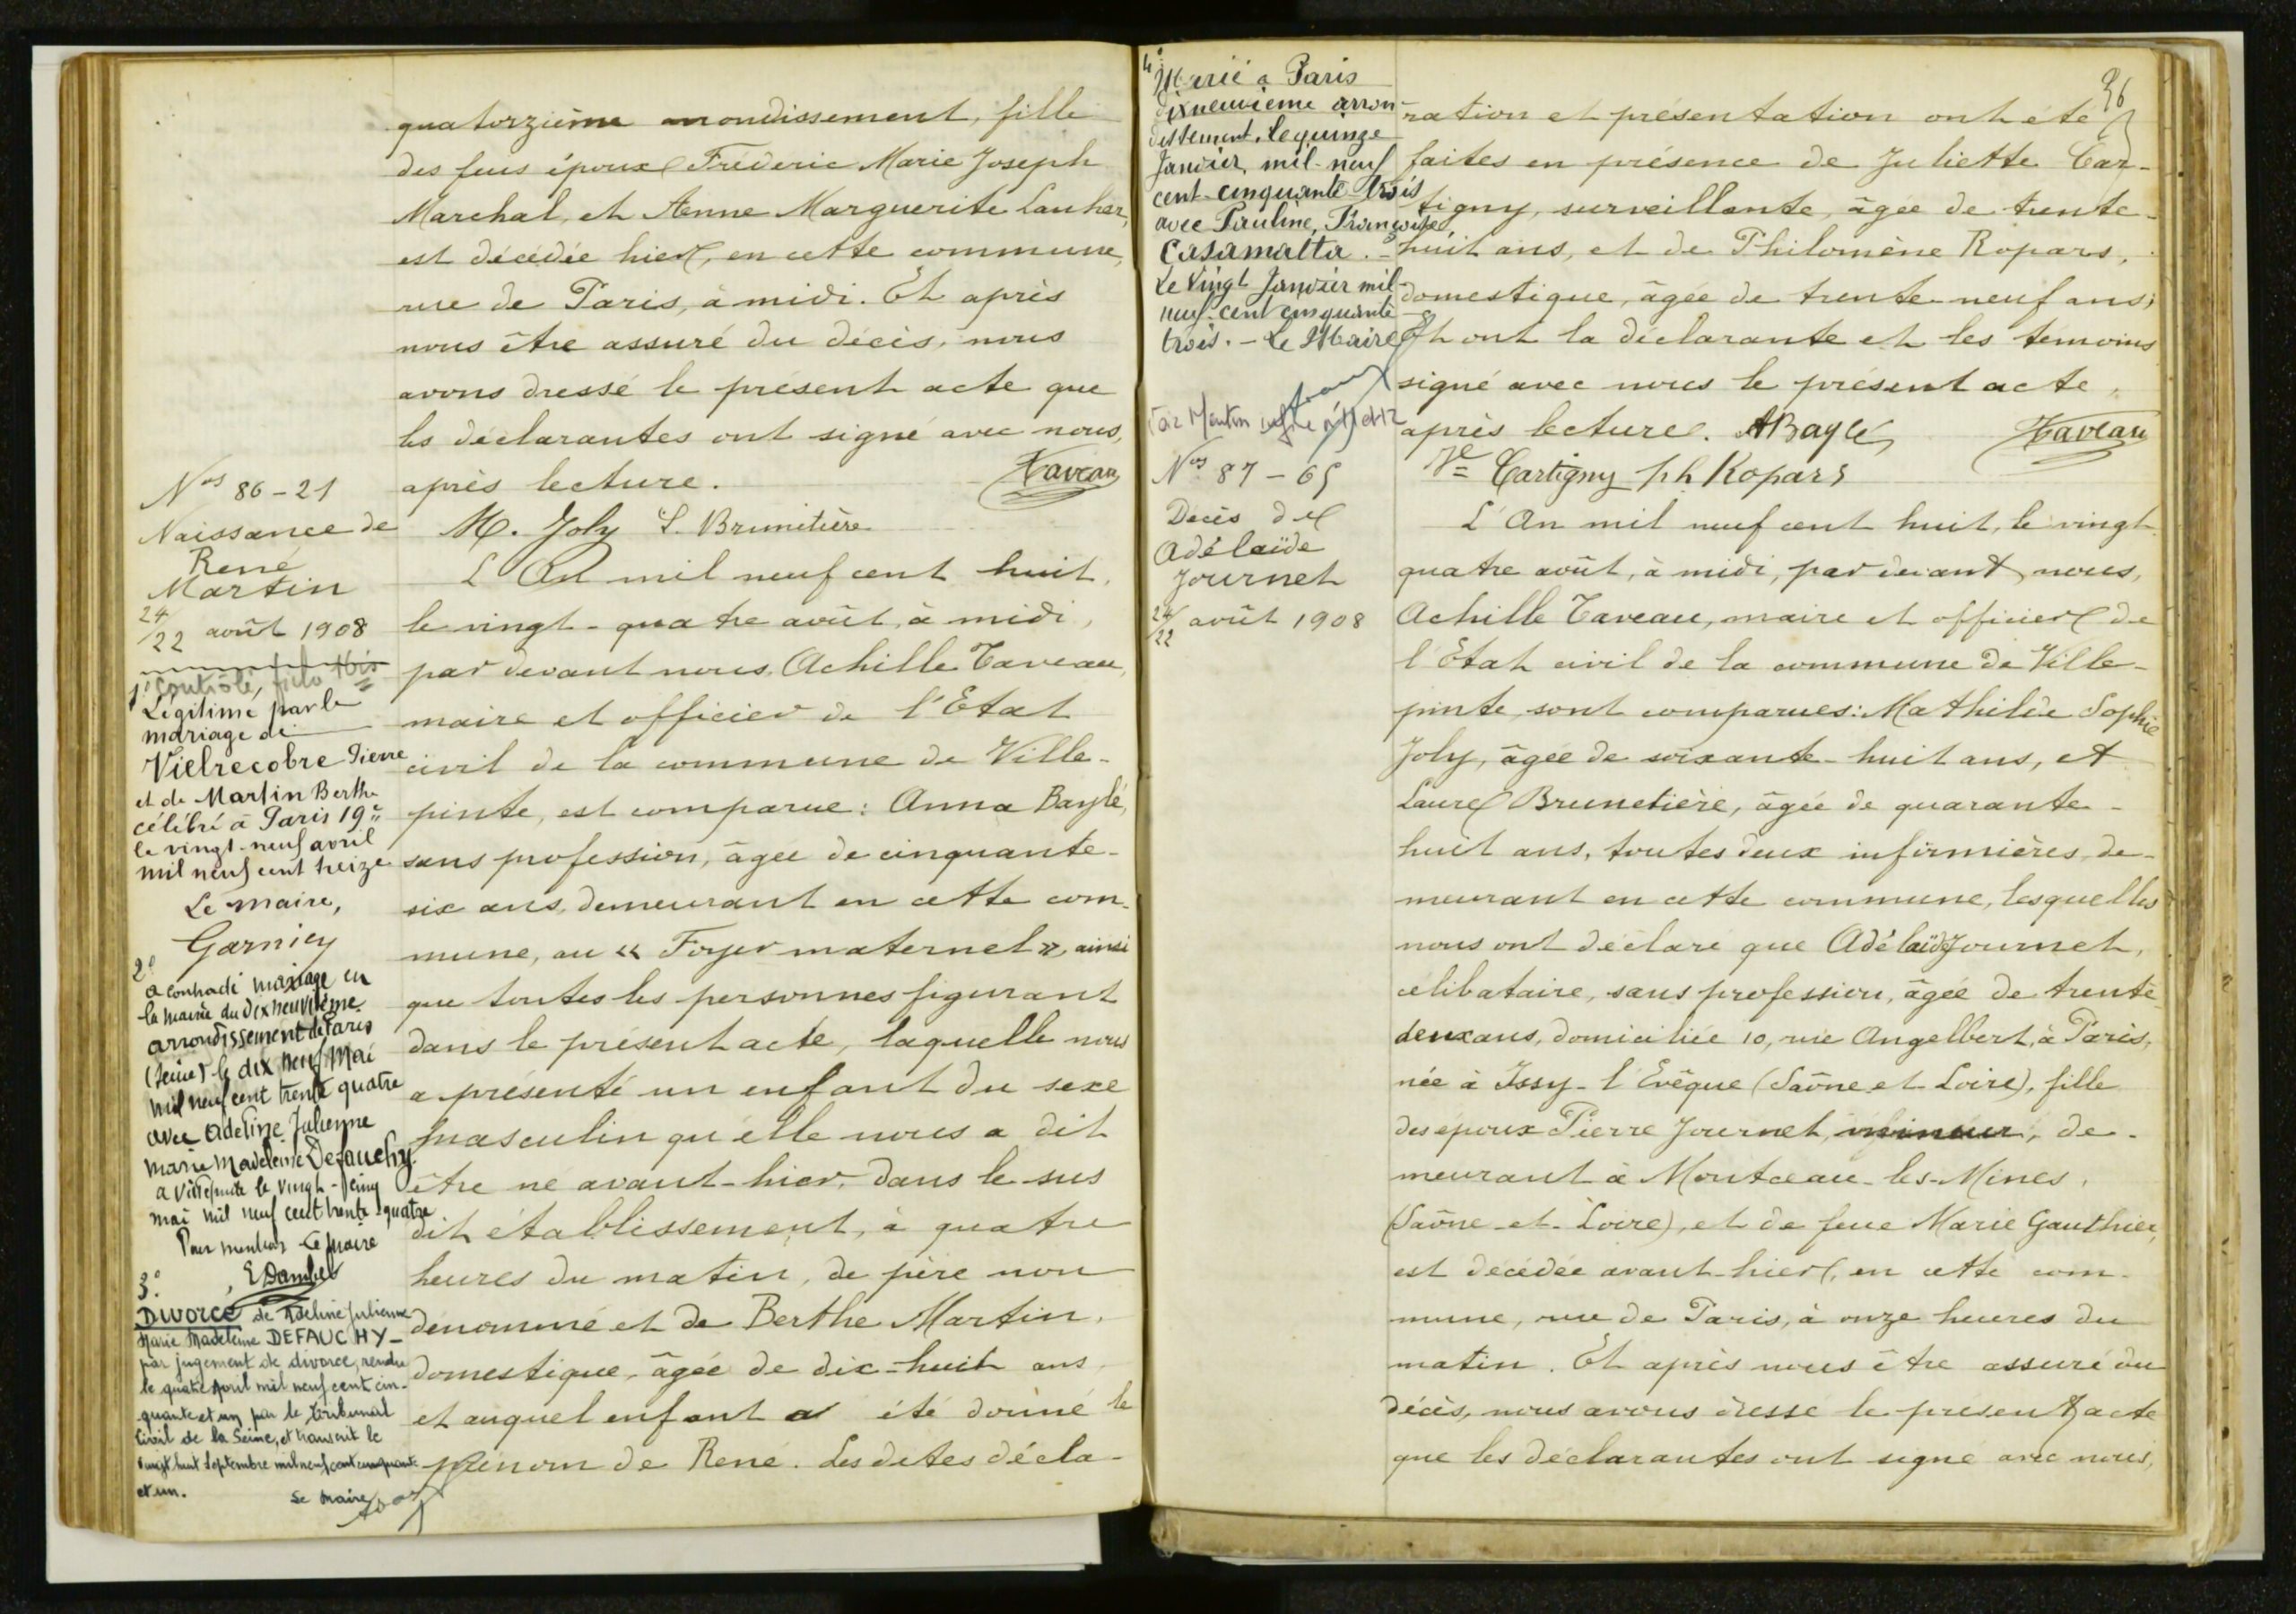 quatorzième arrondissement, fille
des feus époux Fréderic Marie Joseph
Marchal, et Anne Marguerite Lauher,
est décédée hier, en cette commune,
rue de Paris, à midi. Et après
nous être assuré du décès, nous
avons dressé le présent acte que
les déclarantes ont signé avec nous,
après lecture. Taveau
M. Joly L. Brunetière
Nos 86-21
Naissance de
René
Martin
24/22 août 1908
L'An mil neuf cent huit,
le vingt-quatre août, à midi,
par devant nous, Achille Taveau,
maire et officier de l'Etat
civil de la commune de Ville-
pinte, est comparue: Anna Baylé,
sans profession, âgée de cinquante-
six ans, demeurant en cette com-
mune, au « Foyer maternel », ainsi
que toutes les personnes figurant
dans le présent acte, laquelle nous
a présenté un enfant du sexe
masculin qu'elle nous a dit
être né avant-hier, dans le sus
dit établissement, à quatre
heures du matin, de père non
dénommé et de Berthe Martin,
domestique, âgée de dix-huit ans,
et auquel enfant a été donné le
prénom de René. Les dites décla-
1° contrôlé,
Légitimé par le
mariage de
Vielrecobre Pierre
et de Martin Berthe
célébré à Paris 19e
le vingt-neuf avril
mil neuf cent treize
Le maire,
Garnier
2°
a contracté mariage en
la mairie du dix neuvième
arrondissement de Paris
(Seine) le dix neuf Mai
mil neuf cent trente quatre
avec Adeline Julienne
Marie Madeleine Defauchy.
a Villepinte le vingt-cinq
mai mil neuf cent trente quatre
Pour mention Le maire
3°
Divorcé de Adeline Julienne
Marie Madeleine DEFAUCHY-
par jugement de divorce, rendu
le quatre Avril mil neuf cent cin-
quante et un par le tribunal
Civil de la Seine, et transcrit le
vingt huit Septembre mil neuf cent cinquante
et un.
Le Maire
4°
Marié à Paris
dixneuvième arron-
dissement, le quinze
Janvier, mil-neuf
cent-cinquante-trois
avec Pauline, Françoise
Casamatta.-
Le Vingt Janvier mil-
neuf-cent cinquante
trois.- Le Maire
36
ration et présentation ont été
faites en présence de Juliette Car-
tigny, surveillante, âgée de trente-
huit ans, et de Philomène Ropars,
domestique, âgée de trente-neuf ans;
Et ont la déclarante et les témoins
signé avec nous le présent acte,
après lecture. ABaylé Taveau
Ve Cartigny ph Ropars
Nos 87-65
Décès de
Adélaïde
Journet
24/22 août 1908
L'An mil neuf cent huit, le vingt
quatre août, à midi, par devant nous,
Achille Taveau, maire et officier de
l'Etat civil de la commune de Ville-
pinte, sont comparues: Mathilde Sophie
Joly, âgée de soixante-huit ans, et
Laure Brunetière, âgée de quarante-
huit ans, toutes deux infirmières, de-
meurant en cette commune, lesquelles
nous ont déclaré que Adélaïde Journet,
célibataire, sans profession, âgée de trente
deux ans, domiciliée 10, rue Angelbert, à Paris,
née à Issy-l'Evêque (Saône et Loire), fille
des époux Pierre Journet, mineur, de-
meurant à Montceau-les-Mines,
(Saône-et-Loire), et de feue Marie Gauthier,
est décédée avant-hier, en cette com-
mune, rue de Paris, à onze heures du
matin. Et après nous être assuré du
décès, nous avons dressé le présent acte
que les déclarantes ont signé avec nous,